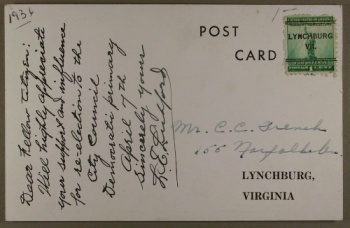 1936
Dear Fellow Citizen:
Will highly appreciate
your support and influence
for re-election to the
City Council
Democratic primary
April 7th
Sincerely yours
L.E. Lichford
POST
CARD
1-
LYNCHBURG
VA.
Mr. C.C. French
155 Norfolk
LYNCHBURG,
VIRGINIA